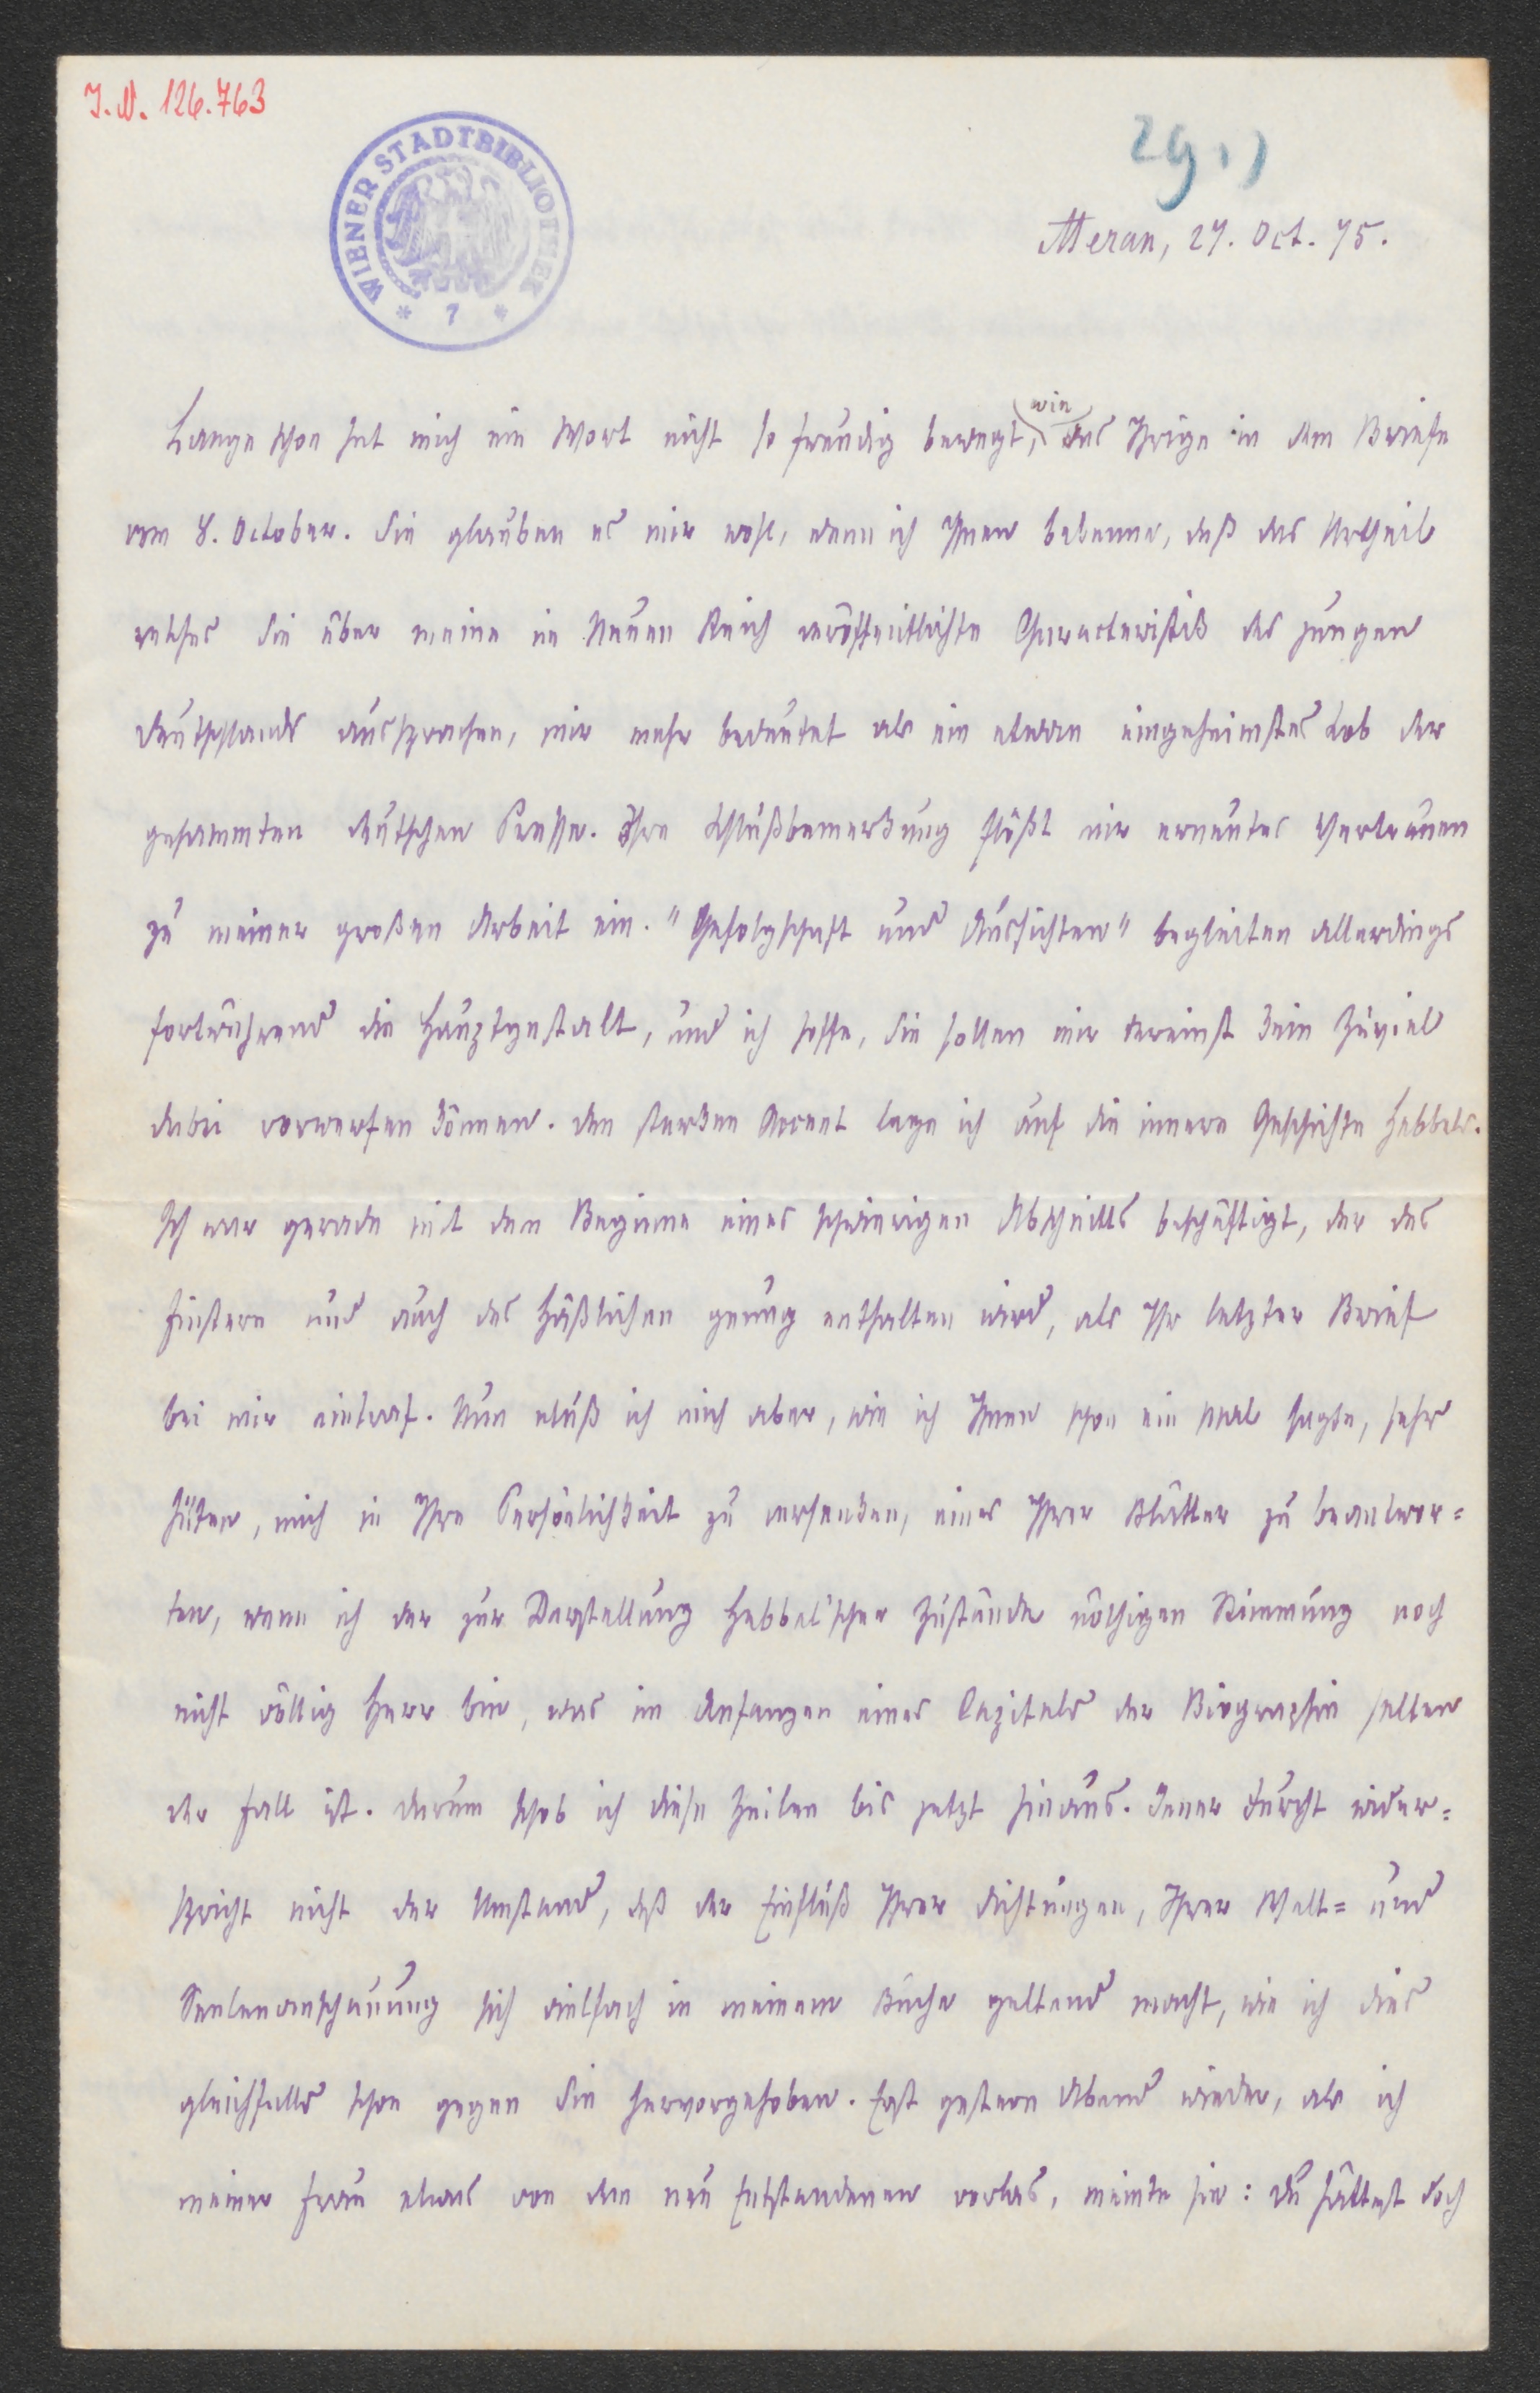 I. N. 126.763
WIENER STADTBIBLIOTHEK
* 7 *
Meran, 27. Oct. 75.
Lange schon hat mich ein Wort nicht so freudig bewegt, wie das Ihrige in dem Briefe
vom 8. October. Sie glauben es mir wohl, wenn ich Ihnen bekenne, daß das Urtheil
welches Sie über meine im Neuen Reich veröffentlichte Characteristik des jungen
Deutschlands aussprachen, mir mehr bedeutet als ein etwan eingeheimstes Lob der
gesammten deutschen Presse. Ihre Schlußbemerkung flößt mir erneutes Vertrauen
zu meiner großen Arbeit ein. "Gefolgschaft und Aussichten" begleiten allerdings
fortwährend die Hauptgestalt, und ich hoffe, Sie sollen mir dereinst kein Zuviel
dabei vorwerfen können. Den starken Accent lege ich auf die innere Geschichte Hebbels.
Ich war gerade mit dem Beginne eines schwierigen Abschnitts beschäftigt, der des
Finstern und auch des Häßlichen genung enthalten wird, als Ihr letzter Brief
bei mir eintraf. Nun muß ich mich aber, wie ich Ihnen schon ein Mal sagte, sehr
hüten, mich in Ihre Persönlichkeit zu versenken, eines Ihrer Blätter zu beantwor=
ten, wenn ich der zur Darstellung Hebbel'scher Zustände nöthigen Stimmung noch
nicht völlig Herr bin, was im Anfangen eines Capitels der Biographie selten
der Fall ist. Darum schob ich diese Zeilen bis jetzt hinaus. Jener Furcht wider=
spricht nicht der Umstand, daß der Einfluß Ihrer Dichtungen, Ihrer Welt= und
Seelenanschauung sich vielfach in meinem Buche geltend macht, wie ich dies
gleichfalls schon gegen Sie hervorgehoben. Erst gestern Abend wieder, als ich
meiner Frau etwas von dem neu Entstandenen vorlas, meinte sie: Du hättest doch